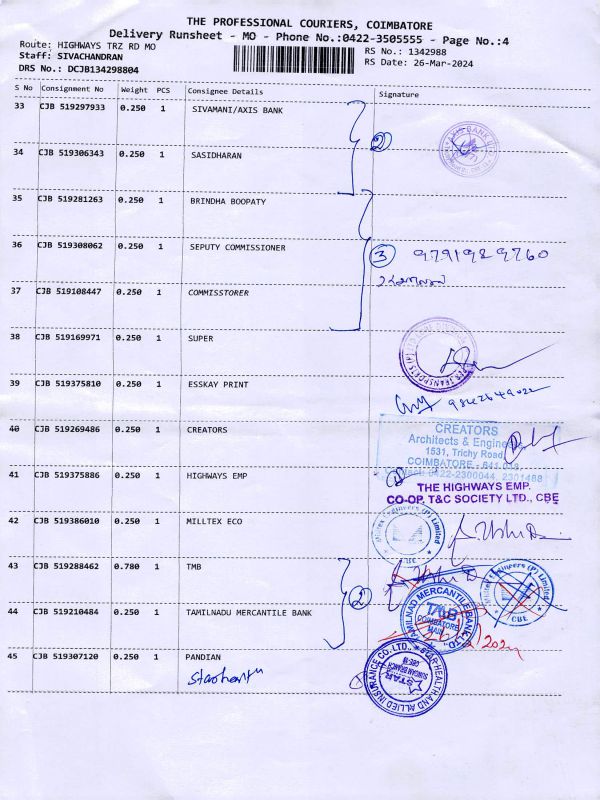 THE PROFESSIONAL COURIERS, COIMBATORE
Delivery Runsheet - MO - Phone No.:0422-3505555 - Page No.:4
Route: HIGHWAYS TRZ RD MO
RS No.: 1342988
Staff: SIVACHANDRAN
RS Date: 26-Mar-2024
DRS No.: DCJB134298804
S No Consignment No Weight PCS Consignee Details Signature
33 CJB 519297933 0.250 1 SIVAMANI/AXIS BANK
2
AXIS BANK
34 CJB 519306343 0.250 1 SASIDHARAN
35 CJB 519281263 0.250 1 BRINDHA BOOPATY
36 CJB 519308062 0.250 1 SEPUTY COMMISSIONER
3 9791989760
37 CJB 519108447 0.250 1 COMMISSTORER
38 CJB 519169971 0.250 1 SUPER
39 CJB 519375810 0.250 1 ESSKAY PRINT
40 CJB 519269486 0.250 1 CREATORS
CREATORS
Architects &
1531, Trichy Road
COIMBATORE
0422-2300044, 2301488
41 CJB 519375886 0.250 1 HIGHWAYS EMP
THE HIGHWAYS EMP.
CO-OP. T&C SOCIETY LTD., CBE
42 CJB 519386010 0.250 1 MILLTEX ECO
Milltex Engineers (P) Limited
CBE
43 CJB 519288462 0.780 1 TMB
2
Engineers (P) Limited
CBE
44 CJB 519210484 0.250 1 TAMILNADU MERCANTILE BANK
TAMILNAD MERCANTILE BANK LTD.
TMB
COIMBATORE
MAIN
45 CJB 519307120 0.250 1 PANDIAN
STAR HEALTH AND ALLIED INSURANCE CO. LTD.
STAR